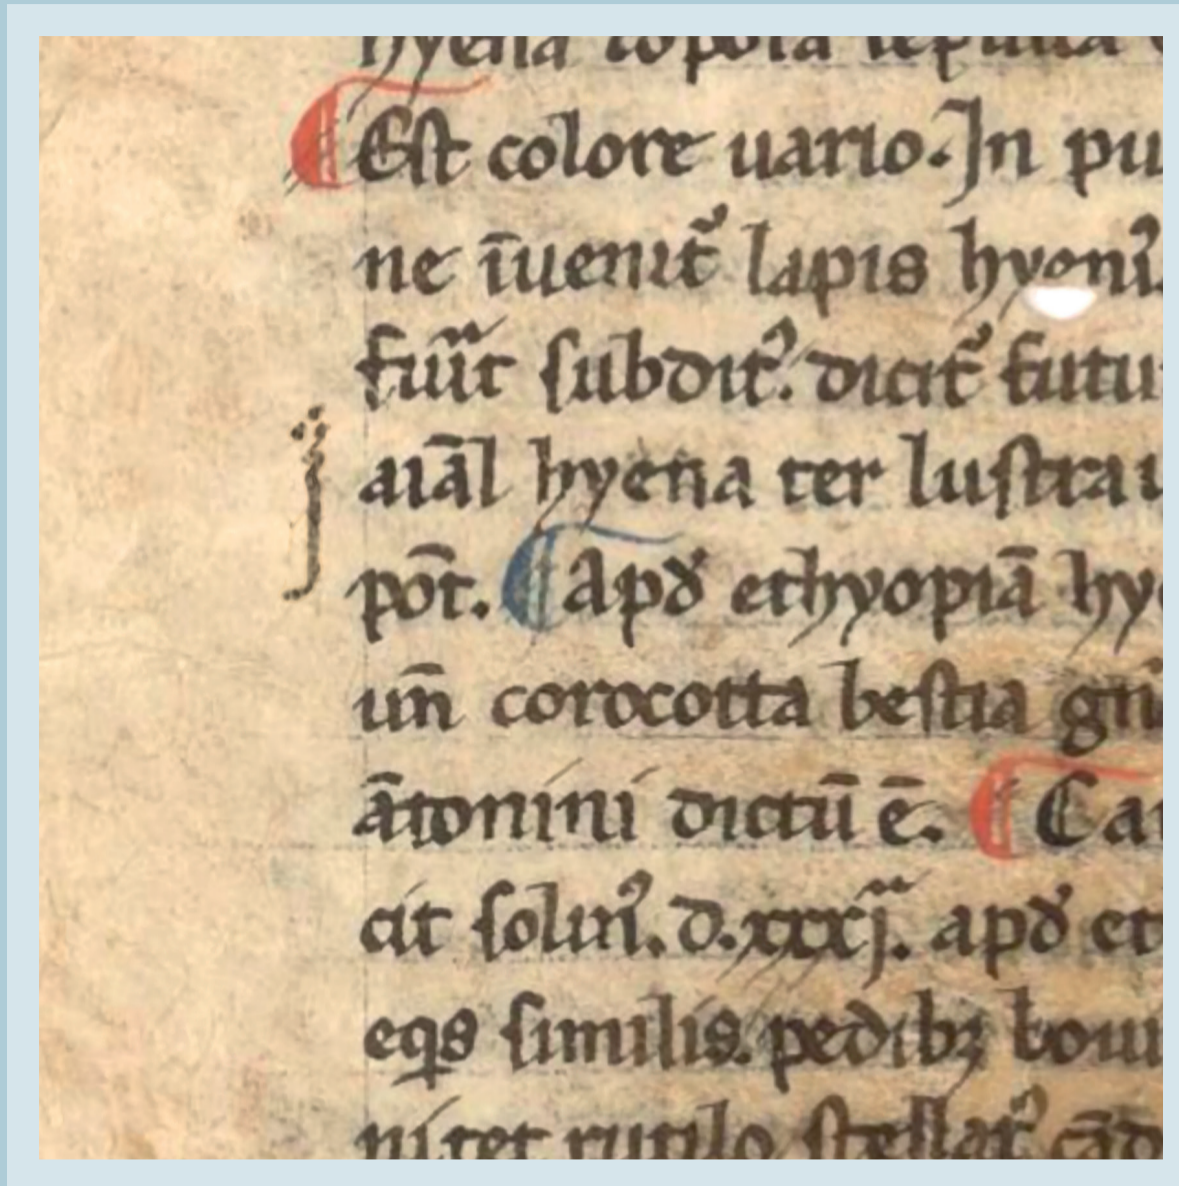 hyena
¶ Est colore uario. In pu
ne īuenit᷑ lapis hyeni᷒
fu̅it subdit᷒. dicit᷑ futu
aīal hyena ter lustrau
pōt. ¶ Apđ ethyopiā hy
un̄ corocotta bestia
ātonini dictū ē. ¶ Ca
cit solin᷒. d. xxxij. apđ et
eqs similis. pedibꝫ boui
nitet rutilo stellat᷒